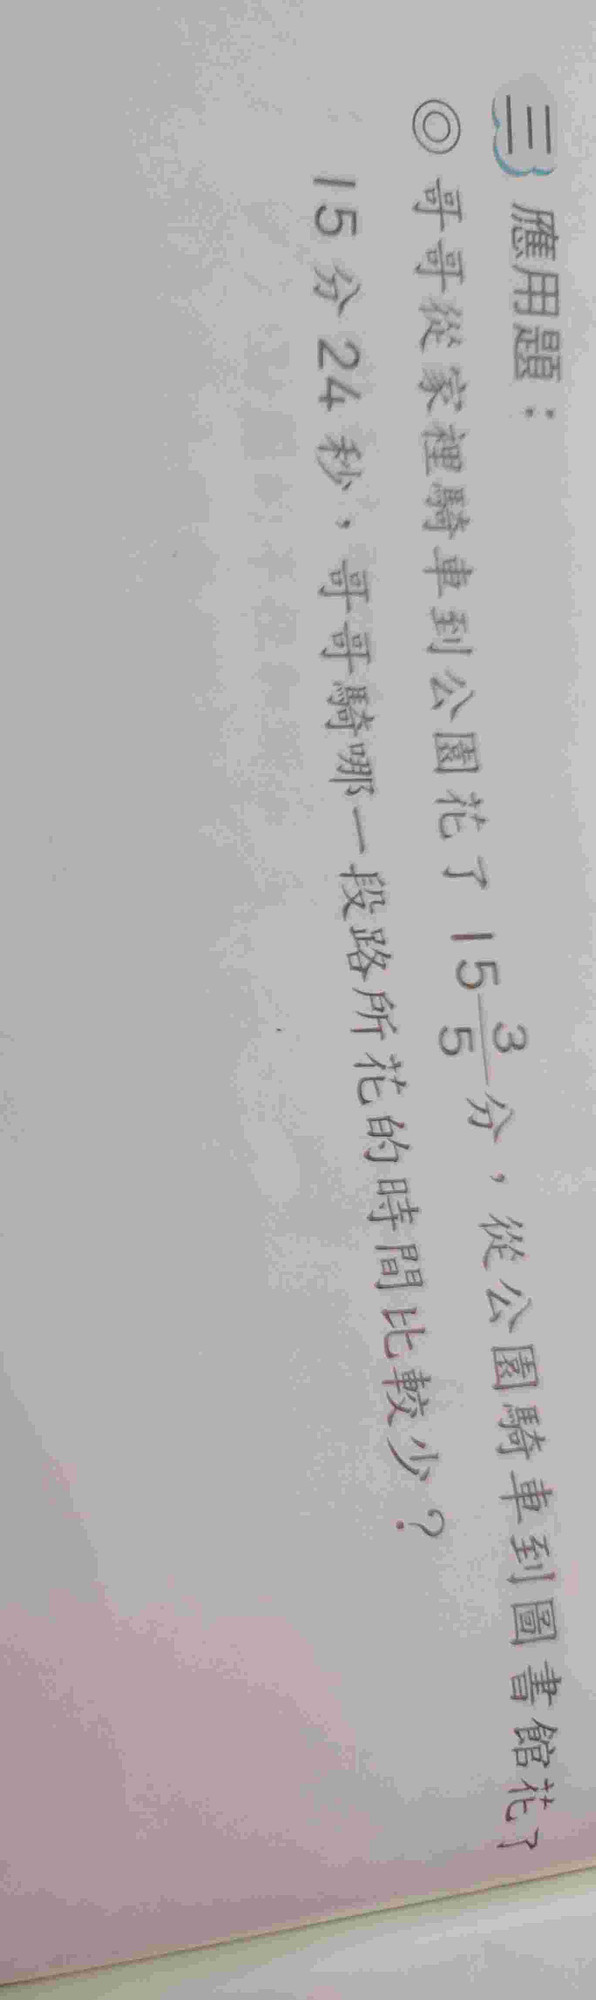 三 應用題：
◎ 哥哥從家裡騎車到公園花了 15 3/5 分，從公園騎車到圖書館花了
15 分 24 秒，哥哥騎哪一段路所花的時間比較少？